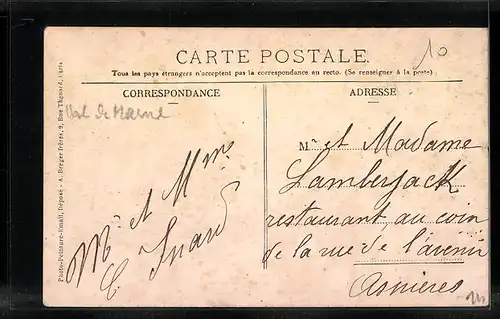 CARTE POSTALE.
10
Tous les pays étrangers n'acceptent pas la correspondance au recto. (Se renseigner à la poste)
CORRESPONDANCE
ADRESSE
Val de Marne
Mr et Mme
E. Suard
Mr et Madame
Lamberjack
restaurant au coin
de la rue de l'avenir
Asnieres
Photo-Peinture-Email, Déposé - A. Breger frères, 9, Rue Thénard, Paris